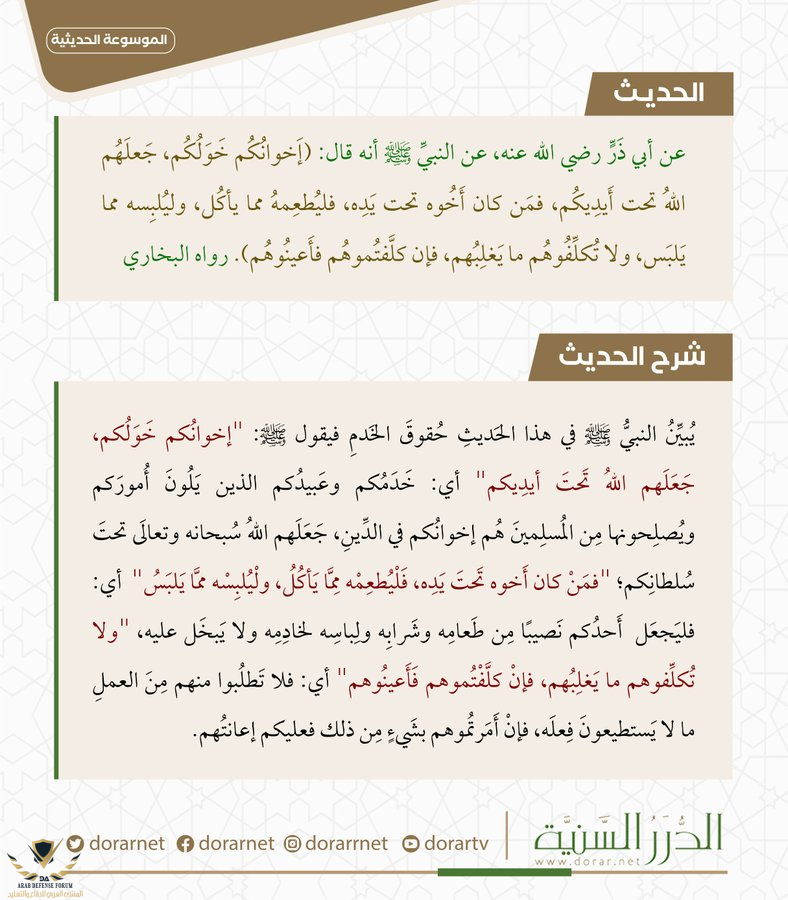 الموسوعة الحديثية
الحديث
عن أبي ذَرٍّ رضي الله عنه، عن النبيِّ ﷺ أنه قال: (إَخوانُكُم خَوَلُكُم، جَعلَهُم
اللهُ تحت أَيدِيكُم، فمَن كان أَخُوه تحت يَدِه، فليُطعِمهُ مما يأكُل، وليُلبِسه مما
يَلبَس، ولا تُكلِّفُوهُم ما يَغلِبُهم، فإن كلَّفتُموهُم فأَعينُوهُم). رواه البخاري
شرح الحديث
يُبيِّنُ النبيُّ ﷺ في هذا الحَديثِ حُقوقَ الخَدمِ فيقول ﷺ: "إخوانُكم خَوَلُكم،
جَعَلَهم اللهُ تَحتَ أيدِيكم" أي: خَدَمُكم وعَبيدُكم الذين يَلُونَ أُمورَكم
ويُصلِحونها مِن المُسلِمينَ هُم إخوانُكم في الدِّينِ، جَعَلَهم اللهُ سُبحانه وتعالَى تحتَ
سُلطانِكم؛ "فمَنْ كان أَخوه تَحتَ يَدِه، فَلْيُطعِمْه مِمَّا يَأكُلُ، ولْيُلبِسْه ممَّا يَلبَسُ" أي:
فليَجعَل أَحدُكم نَصيبًا مِن طَعامِه وشَرابِه ولِباسِه لخادِمِه ولا يَبخَل عليه، "ولا
تُكلِّفوهم ما يَغلِبُهم، فإنْ كلَّفْتُموهم فَأَعينُوهم" أي: فلا تَطلُبوا منهم مِنَ العملِ
ما لا يَستطيعونَ فِعلَه، فإنْ أَمَرتُموهم بشَيءٍ مِن ذلك فعليكم إعانتُهم.
الدُّرَرُ السَّنِيَّة
www.dorar.net
dorarnet dorarnet dorarrnet dorartv
DA
ARAB DEFENSE FORUM
المنتدى العربي للدفاع والتسليح